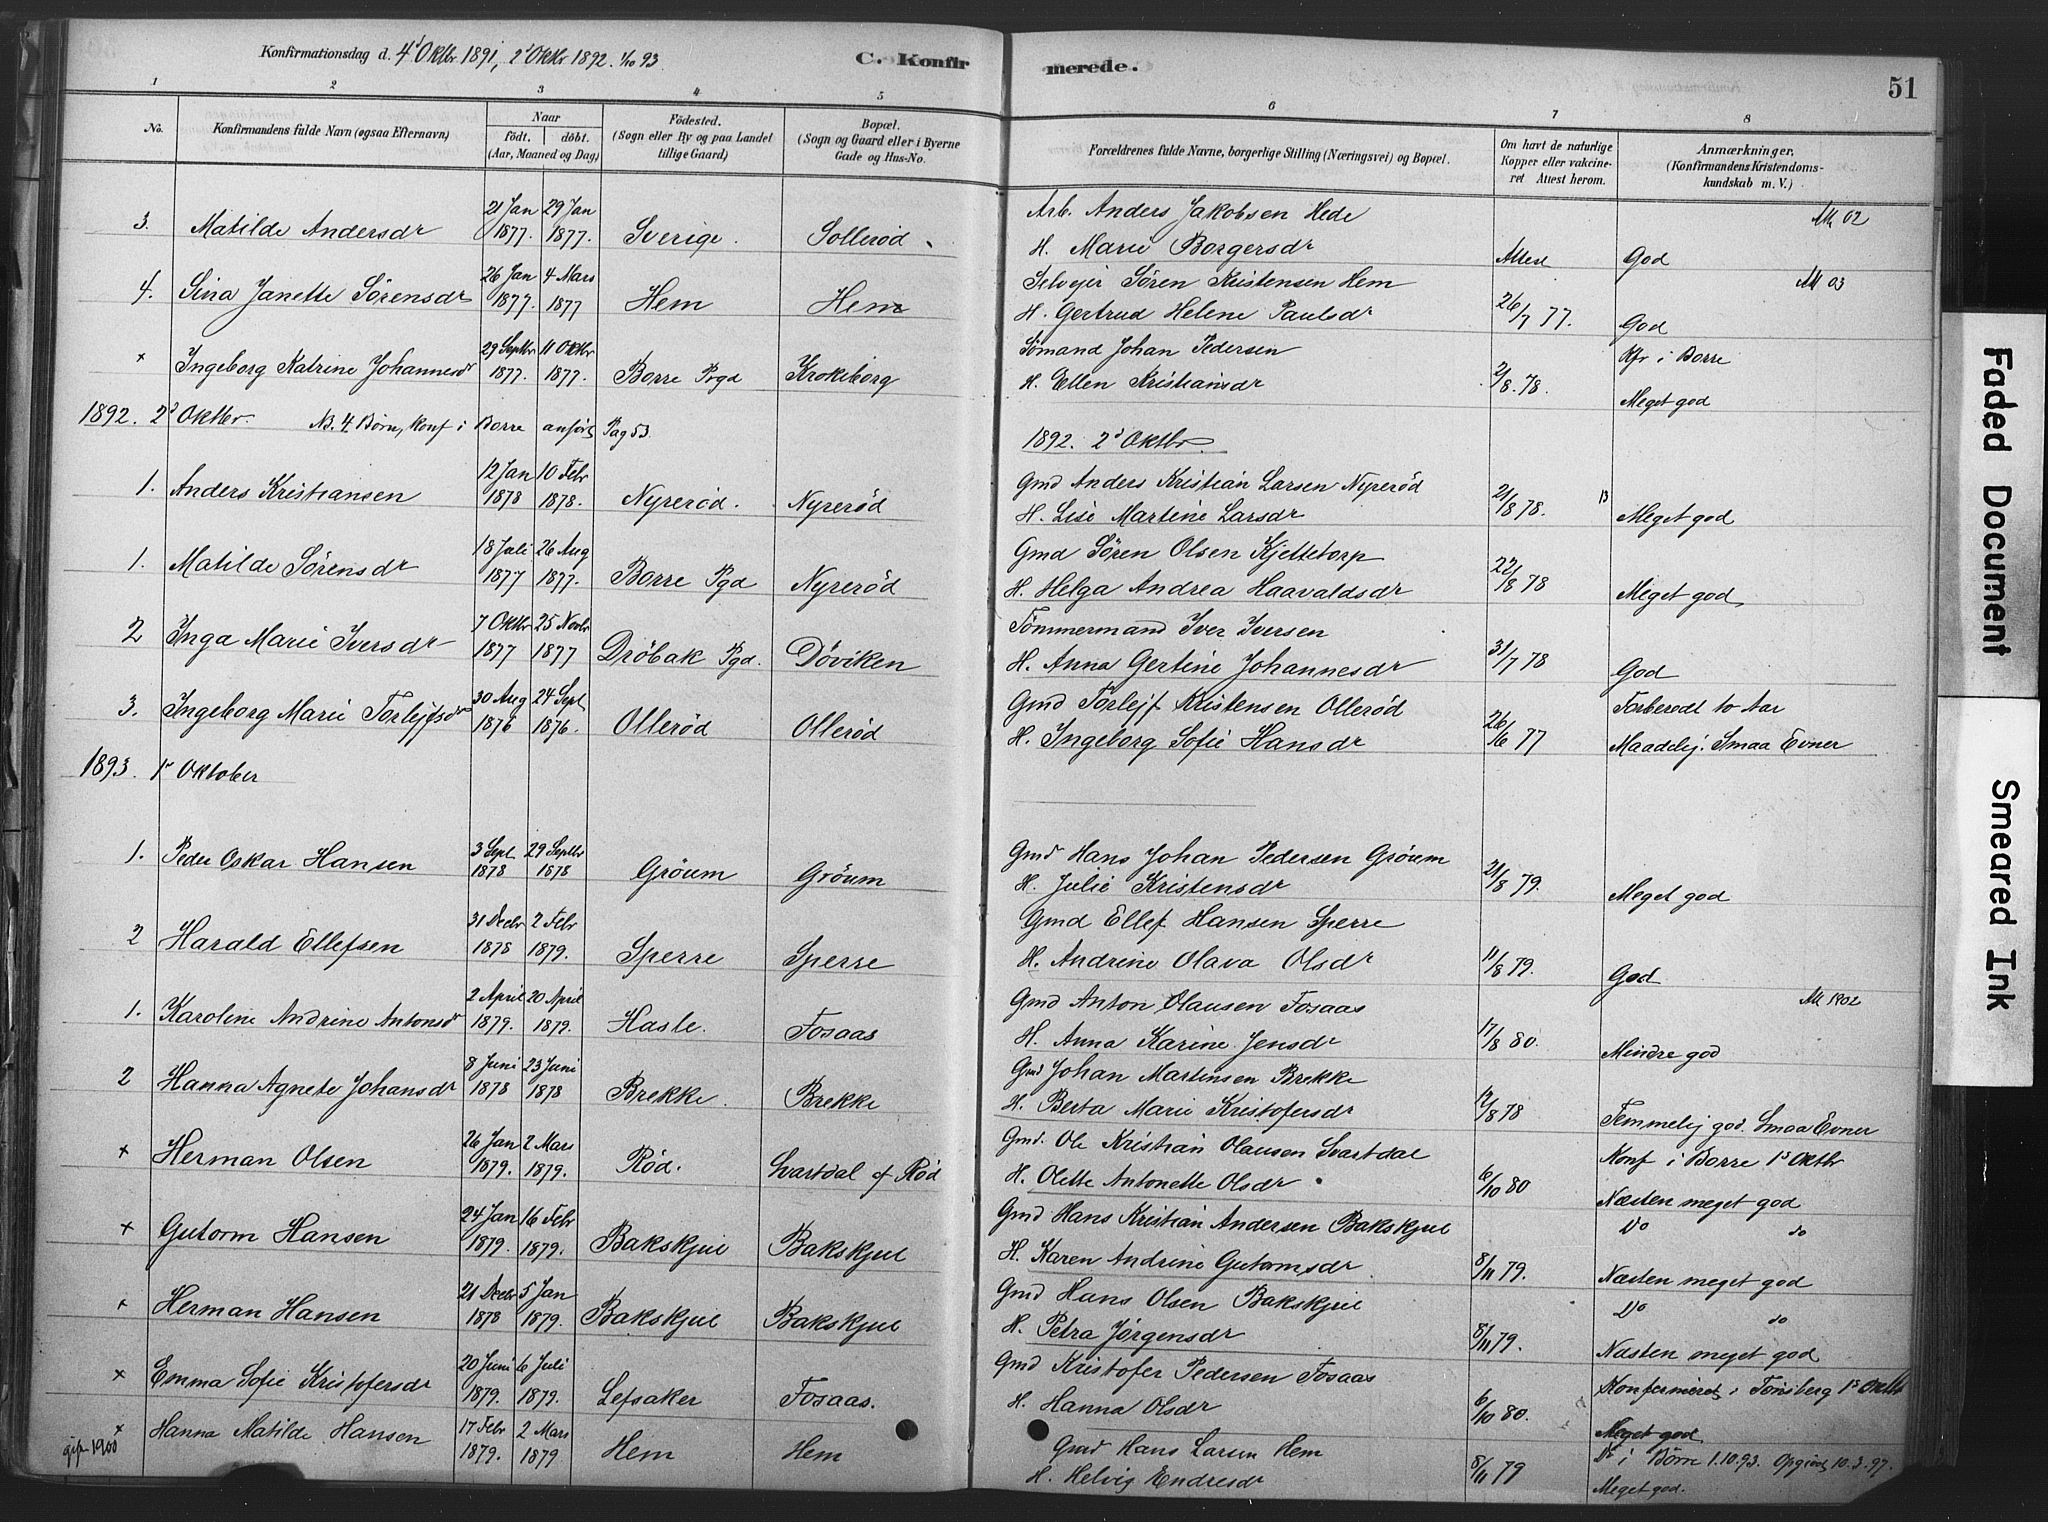 Konfirmationsdag d. 4d Oktbr 1891, 2d Oktbr 1892. 1/10 93.
C. Konfirmerede.
51
1 2 3 4 5 6 7 8
No.
Konfirmandens fulde Navn (ogsaa Efternavn)
Naar
født. døbt.
(Aar, Maaned og Dag)
Fødested.
(Sogn eller By og paa Landet
tillige Gaard)
Bopæl.
(Sogn og Gaard eller i Byerne
Gade og Hus-No.
Forældrenes fulde Navne, borgerlige Stilling (Næringsvei) og Bopæl.
Om havt de naturlige
Kopper eller vakcine-
ret Attest herom.
Anmærkninger,
(Konfirmandens Kristendoms-
kundskab m. V.)
3. Matilde Andersdr 21 Jan 1877. 29 Jan 1877. Sverige. Sollerød
Arb. Anders Jakobsen Hede
H. Marie Borgersdr Attest God Att 02
4. Sina Janette Sørensdr 26 Jan 1877. 4 Mars 1877 Hem Hem
Selvejer Søren Kristensen Hem
H. Gertrud Helene Paulsdr 26/7 77. God Att 03
+ Ingeborg Katrine Johannesdr 29 Septbr 1877. 11 Oktbr 1877. Borre Pgd Krokeborg
Sømand Johan Pedersen Kfr i Borre
H. Ellen Kristiansdr 2/8. 78. Meget god
1892. 2d Oktbr. NB. 4 Børn, konf i Borre anført Pag 53.
1892. 2d Oktbr.
1. Anders Kristiansen 12 Jan 1878 10 Febr 1878. Nyrerød. Nyrerød
Gmd Anders Kristian Larsen Nyrerød
H. Lise Martine Larsdr 21/8 78. 13 Meget god
1. Matilde Sørensdr 18 Juli 1877 26 Aug 1877. Borre Pgd Nyrerød
Gmd Søren Olsen Kjettetorp
H. Helga Andrea Haavaldsdr 22/8 78 Meget god
2 Inga Marie Iversdr 7 Oktbr 1877 25 Novbr 1877 Drøbak Pgd. Døviken
Tømmermand Iver Iversen
H. Anna Gertine Johannesdr 31/7 78 God
3. Ingeborg Marie Torlejfsdr 30 Aug 1876 24 Sept 1876. Ollerød Ollerød
Gmd Torlejf Kristensen Ollerød Forberedt to Aar
H. Ingeborg Sofie Hansdr 26/6 77 Maadelig. Smaa Evner
1893. 1st Oktober
1. Peder Oskar Hansen 3 Sept 1878 29 Septbr 1878 Grøum Grøum
Gmd Hans Johan Pedersen Grøum
H. Julie Kristensdr 21/8 79. Meget god
2 Harald Ellefsen 31 Decbr 1878 2 Febr 1879. Sperre Sperre
Gmd Ellef Hansen Sperre
H. Andrine Olava Olsdr 11/8 79. God
1. Karoline Andrine Antonsdr 2 April 1879. 20 April 1879. Hasle. Fosaas
Gmd Anton Olausen Fosaas Att 1902
H. Anna Karine Jensdr 17/8 80. Mindre god
2 Hanna Agnete Johansdr 8 Juni 1878 23 Juni 1878 Brekke. Brekke
Gmd Johan Martinsen Brekke
H. Berta Marie Kristofersdr 12/8 78 Temmelig god. Smaa Evner
+ Herman Olsen 26 Jan 1879. 2 Mars 1879. Rød. Svartdal af Rød
Gmd. Ole Kristian Olausen Svartdal Konf i Borre 1s Oktbr
H. Olette Antonette Olsdr 6/10 80 Næsten meget god
+ Gutorm Hansen 24 Jan 1879. 16 Febr 1879. Bakskjul Bakskjul
Gmd Hans Kristian Andersen Bakskjul Do do
H. Karen Andrine Gutormsdr 8/11 79. Næsten meget god
+ Herman Hansen 21 Decbr 1878 5 Jan 1879. Bakskjul Bakskjul
Gmd Hans Olsen Bakskjul Do do
H. Petra Jørgensdr 8/11 79. Næsten meget god
+ Emma Sofie Kristofersdr 20 Juni 1879. 6 Juli 1879. Lefsaker Fosaas.
Gmd Kristofer Pedersen Fosaas Konfirmeret i Tønsberg 1s Oktbr
H. Hanna Olsdr 6/10 80. Meget god
+ gift 1900 Hanna Matilde Hansen 17 Febr 1879. 2 Mars 1879 Hem Hem
Gmd Hans Larsen Hem Do i Borre 1.10.93. 10.3.97.
H. Helvig Endresdr 8/11 79 Meget god.
Faded Document
Smeared Ink